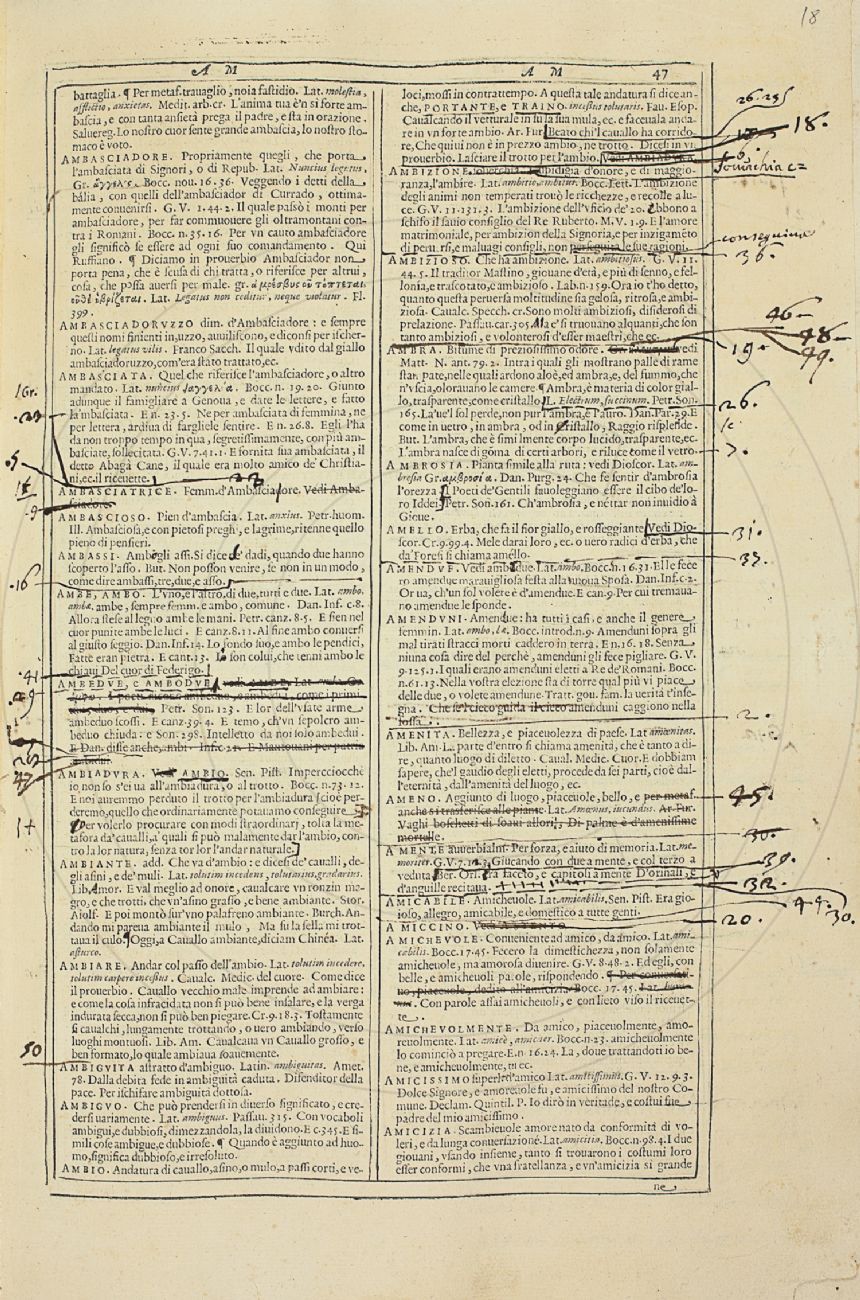 18
A M
A M
47
battaglia. ¶ Per metaf. trauaglio, noia fastidio. Lat. molestia,
afflictio, anxietas. Medit. arb. cr. L'anima tua è'n si forte am-
bascia, e con tanta ansietà prega il padre, e sta in orazione.
Saluereg. Lo nostro cuor sente grande ambascia, lo nostro sto-
maco è voto.
AMBASCIADORE. Propriamente quegli, che porta
l'ambasciata di Signori, o di Repub. Lat. Nuncius legatus.
Gr. ἄγγελος. Bocc. nou. 16. 36. Veggendo i detti della
balia, con quelli dell'ambasciador di Currado, ottima-
mente conuenirsi. G. V. 1. 44. 2. Il quale passò i monti per
ambasciadore, per far commuouere gli oltramontani con-
tra i Romani. Bocc. n. 35. 16. Per vn cauto ambasciadore
gli significò se essere ad ogni suo comandamento. Qui
Ruffiano. ¶ Diciamo in prouerbio Ambasciador non
porta pena, che è scusa di chi tratta, o riferisce per altrui,
cosa, che possa auersi per male. gr.
Lat. Legatus non ceditur, neque violatur. Fl.
399.
AMBASCIADORVZZO dim. d'Ambasciadore: e sempre
questi nomi finienti in, uzzo, auuiliscono, e diconsi per ischer-
no. Lat. legatus vilis. Franco Sacch. Il quale vdito dal giallo
ambasciadoruzzo, com'era stato trattato, ec.
AMBASCIATA. Quel che riferisce l'ambasciadore, o altro
mandato. Lat. nuncius Bocc. n. 19. 20. Giunto
adunque il famigliare a Genoua, e date le lettere, e fatto
la'mbasciata. E n. 23. 5. Ne per ambasciata di femmina, ne
per lettera, ardiua di fargliele sentire. E n. 26. 8. Egli l'ha
da non troppo tempo in qua, segretissimamente, con più am-
basciate, sollecitata. G. V. 7. 41. 1. E fornita sua ambasciata, il
detto Abagà Cane, il quale era molto amico de' Christia-
ni, ec. il riceuette.
AMBASCIATRICE. Femm. d'Ambasciadore. Vedi Amba-
sciadore.
AMBASCIOSO. Pien d'ambascia. Lat. anxius. Petr. huom.
Ill. Ambasciosa, e con pietosi pregh', e lagrime, ritenne quello
pieno di pensieri.
AMBASSI. Ambogli assi. Si dice de' dadi, quando due hanno
scoperto l'asso. But. Non posson venire, se non in un modo,
come dire ambassi, tre, due, e asso.
AMBE, AMBO. L'vno, e l'altro, di due, tutti e due. Lat. ambo,
ambæ. ambe, sempre femm. e ambo, comune. Dan. Inf. c. 8.
Allora stese al legno ambe le mani. Petr. canz. 8. 5. E sien nel
cuor punite ambe le luci. E canz. 8. 11. Al fine ambo conuersi
al giusto seggio. Dan. Inf. 14. Lo fondo suo, e ambo le pendici,
Fatte eran pietra. E cant. 13. Io son colui, che tenni ambo le
chiaui Del cuor di Federigo.
AMBEDVE, e AMBODVE
Petr. Son. 123. E lor dell'vsate arme
ambeduo scossi. E canz. 39. 4. E temo, ch'vn sepolcro am-
beduo chiuda: e Son. 298. Intelletto da noi solo ambedui.
E Dan. disse anche, ambi. Inf. c. 21. E Mantouani per patria
ambedui.
AMBIADVRA. Vedi AMBIO. Sen. Pist. Impercciocchè
io non so s'ei ua all'ambiadura, o al trotto. Bocc. n. 73. 12.
E noi auremmo perduto il trotto per l'ambiadura [cioè per-
deremo, quello che ordinariamente potauamo conseguire
Per volerlo procurare con modi straordinarj, tolta la me-
tafora da' caualli, a' quali si può malamente dar l'ambio, con-
tro la lor natura, senza tor lor l'andar naturale.]
AMBIANTE. add. Che va d'ambio: e dicesi de' caualli, de-
gli asini, e de' muli. Lat. tolutim incedens, tolutarius, gradarius.
Lib. Amor. E val meglio ad onore, caualcare vn ronzin ma-
gro, e che trotti, che vn'asino grasso, e bene ambiante. Stor.
Aiolf. E poi montò sur'vno palafreno ambiante. Burch. An-
dando mi pareua ambiante il mulo, Ma su la sella mi trot-
taua il culo. ¶ Oggi, a Cauallo ambiante, diciam Chinéa. Lat.
asturco.
AMBIARE. Andar col passo dell'ambio. Lat. tolutim incedere,
tolutim carpere incessus. Caualc. Medic. del cuore. Come dice
il prouerbio. Cauallo vecchio male imprende ad ambiare:
e come la cosa infracidata non si può bene insalare, e la verga
indurata secca, non si può ben piegare. Cr. 9. 18. 3. Tostamente
si caualchi, lungamente trottando, o uero ambiando, verso
luoghi montuosi. Lib. Am. Caualcaua vn Cauallo grosso, e
ben formato, lo quale ambiaua soauemente.
AMBIGVITA astratto d'ambiguo. Latin. ambiguitas. Amet.
78. Dalla debita fede in ambiguità caduta. Difenditor della
pace. Per ischifare ambiguità dottosa.
AMBIGVO. Che può prendersi in diuerso significato, e cre-
dersi uariamente. Lat. ambiguus. Passau. 315. Con vocaboli
ambigui, e dubbiosi, dimezzandola, la diuidono. E c. 345. E si-
mili cose ambigue, e dubbiose. ¶ Quando è aggiunto ad huo-
mo, significa dubbioso, e irresoluto.
AMBIO. Andatura di cauallo, asino, o mulo, a passi corti, e ve-
loci, mossi in contrattempo. A questa tale andatura si dice an-
che, PORTANTE, e TRAINO. incessus tolutaris. Fau. Esop.
Caualcando il vetturale in su la sua mula, ec. e faceuala anda-
re in vn forte ambio. Ar. Fur. Beato chi'l cauallo ha corrido-
re, Che qui ui non è in prezzo ambio, ne trotto. Dicesi in vi
prouerbio. Lasciare il trotto per l'ambio. Vedi AMBIADVRA.
AMBIZIONE. cupidigia d'onore, e di maggio-
ranza, l'ambire. Lat. ambitio, ambitus. Bocc. Lett. L'ambizione
degli animi non temperati trouò le ricchezze, e recolle a lu-
ce. G. V. 11. 131. 3. L'ambizione dell'Vficio de' 20. ebbono a
schifo il sauio consiglio del Re Ruberto. M. V. 1. 9. E l'amore
matrimoniale, per ambizion della Signoria, e per inzigameto
di peruersi, e maluagi consigli, non perseguita le sue ragioni.
AMBIZIOSO. Che ha ambizione. Lat. ambitiosus. G. V. 11.
44. 5. Il traditor Mastino, giouane d'età, e più di senno, e fel-
lonia, e trascotato, e ambizioso. Lab. n. 159. Ora io t'ho detto,
quanto questa peruersa moltitudine sia gelosa, ritrosa, e ambi-
ziosa. Caualc. Specch. cr. Sono molti ambiziosi, disiderosi di
prelazione. Passau. car. 305. Ma e' si truouano alquanti, che son
tanto ambiziosi, e volonterosi d'esser maestri, che ec.
AMBRA. Bitume di preziosissimo odore. vedi
Matt. N. ant. 79. 2. Intra i quali gli mostrano palle di rame
stan pate, nelle quali ardono aloè, ed ambra, e, del fummo, che
n'vscia, olorauano le camere ¶ Ambra, è materia di color gial-
lo, trasparente, come cristallo. L. Electrum, succinum. Petr. Son.
165. La'ue'l sol perde, non pur l'ambra, e l'auro. Dan. Par. 29. E
come in uetro, in ambra, od in cristallo, Raggio risplende.
But. L'ambra, che è simil mente corpo lucido, trasparente, ec.
L'ambra nasce di goma di certi arbori, e riluce come il vetro.
AMBROSIA. Pianta simile alla ruta: vedi Dioscor. Lat. am-
brosia Gr. ἀμβροσία. Dan. Purg. 24. Che fe sentir d'ambrosia
l'orezza. ¶ Poeti de' Gentili fauoleggiano essere il cibo de' lo-
ro Iddei. Petr. Son. 161. Ch'ambrosia, e nettar non inuidio à
Gioue.
AMELLO. Erba, che fa il fior giallo, e rosseggiante. Vedi Dio-
scor. Cr. 9. 99. 4. Mele darai loro, ec. o uero radici d'erba, che
da' Foresi si chiama amello.
AMENDVE. Vedi ambedue. Lat. ambo. Bocc. n. 16. 31. Elle fece
ro amendue marauigliosa festa alla nuoua Sposa. Dan. Inf. c. 2.
Or ua, ch'un sol volere è d'amendue. E can. 9. Per cui tremaua-
no amendue le sponde.
AMENDVNI. Amendue: ha tutti i casi, e anche il genere
femmin. Lat. ambo, bæ. Bocc. introd. n. 9. Amenduni sopra gli
mal tirati stracci morti caddero in terra. E n. 16. 18. Senza
niuna cosa dire del perchè, amenduni gli fece pigliare. G. V.
9. 125. 1. I quali erano amenduni eletti a Re de' Romani. Bocc.
n. 61. 13. Nella vostra elezione sta di torre qual più vi piace
delle due, o volete amendune. Tratt. gou. fam. la uerità t'inse-
gna. Che se'l cieco guida il cieco amenduni caggiono nella
fossa.
AMENITA. Bellezza, e piaceuolezza di paese. Lat. amœnitas.
Lib. Am. L. parte d'entro si chiama amenità, che è tanto a di-
re, quanto luogo di diletto. Caual. Medic. Cuor. E dobbiam
sapere, che'l gaudio degli eletti, procede da sei parti, cioè dal-
l'eternità, dall'amenità del luogo, ec.
AMENO. Aggiunto di luogo, piaceuole, bello, e per metaf.
anche si trasferisce alle piante. Lat. Amœnus, iucundus. Ar. Fur.
Vaghi boschetti di soaui allori, Di palme è d'amenissime
mortelle.
A MENTE auuerbialm. Per forza, e aiuto di memoria. Lat. me-
moriter. G. V. 7. 12. 3. Giucando con due a mente, e col terzo a
veduta. Ber. Orl. era faccto, e capitoli a mente D'orinali, e
d'anguille recitaua.
AMICABILE. Amicheuole. Lat. amicabilis. Sen. Pist. Era gio-
ioso, allegro, amicabile, e domestico a tutte genti.
A MICCINO. Vedi A STENTO.
AMICHEVOLE. Conueniente ad amico, da amico. Lat. ami-
cabilis. Bocc. 17. 45. Fecero la dimestichezza, non solamente
amicheuole, ma amorosa diuenire. G. V. 8. 48. 2. Ed egli, con
belle, e amicheuoli parole, rispondendo. ¶ Per conuersati-
uo, piaceuole, dedito all'amicizia. Bocc. 17. 45.
Con parole assai amicheuoli, e con lieto viso il riceuet-
te.
AMICHEVOLMENTE. Da amico, piaceuolmente, amo-
reuolmente. Lat. amicè, amicaer. Bocc. n. 23. amicheuolmente
lo cominciò a pregare. E n. 16. 24. La, doue trattandoti io be-
ne, e amicheuolmente, tu ec.
AMICISSIMO superlat. d'amico Lat. amicissimus. G. V. 12. 9. 3.
Dolce Signore, e amoreuole fu, e amicissimo del nostro Co-
mune. Declam. Quintil. P. Io dirò in veritade, e costui fue
padre del mio amicissimo.
AMICIZIA. Scambieuole amore nato da conformità di vo-
leri, e da lunga conuersazione. Lat. amicitia. Bocc. n. 98. 4. I due
giouani, vsando insieme, tanto si trouarono i costumi loro
esser conformi, che vna fratellanza, e vn'amicizia sì grande
ne
18.
conseguiua
36.
46
48
49.
19
26.
7.
31.
33.
2.
45.
30.
39.
32.
44.
30.
20.
5
9
16
41
50